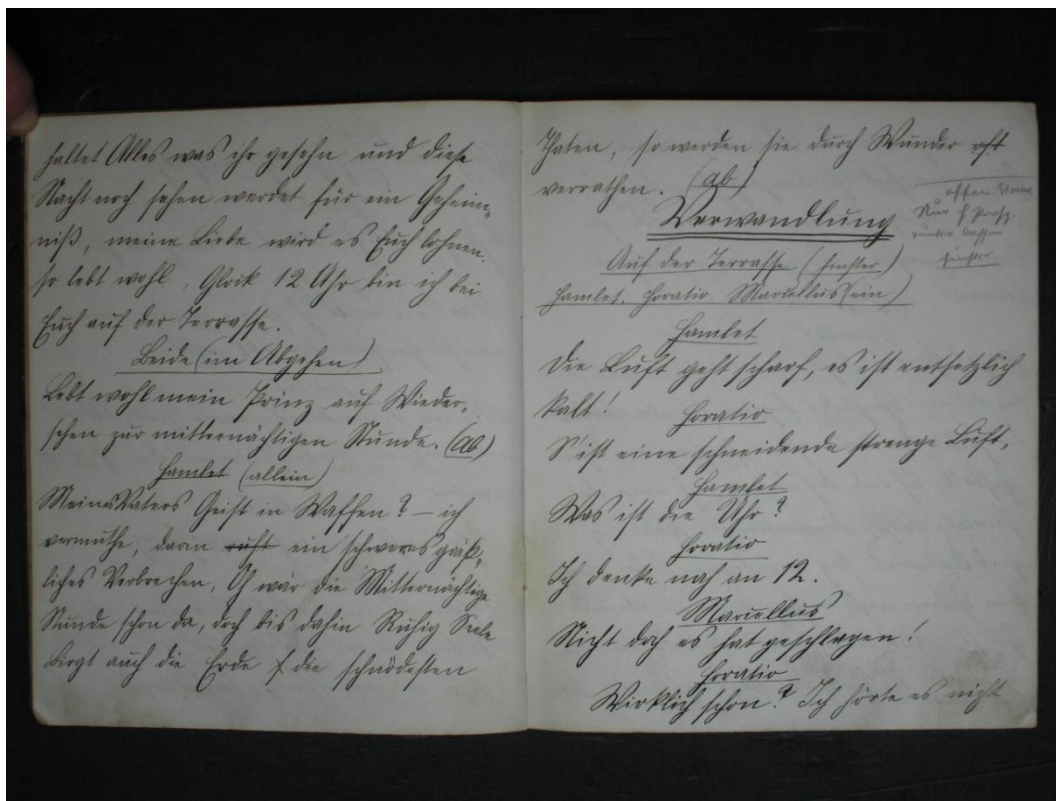 haltet Alles was ihr gesehn und diese
Nacht noch sehen werdet für ein Geheim-
niß, meine Liebe wird es Euch lohnen.
so lebt wohl, Glock 12 Uhr bin ich bei
Euch auf der Terrasse.
Beide (im Abgehen)
Lebt wohl mein Prinz auf Wieder-
sehen zur mitternächtigen Stunde. (ab)
Hamlet (allein)
Meines Vaters Geist in Waffen? – ich
vermuthe, darin ruft ein schweres gräß-
liches Verbrechen, Oh wär die Mitternächtige
Stunde schon da, doch bis dahin Ruhig Seele
birgt auch die Erde die schnödesten
Thaten, so werden sie durch Wunder oft
verrathen. (ab)
Verwandlung
offen
Nur
finster
Auf der Terrasse (finster)
Hamlet. Horatio Marcellus (ein)
Hamlet
Die Luft geht scharf, es ist entsetzlich
kalt!
Horatio
S'ist eine schneidende strenge Luft,
Hamlet
Was ist die Uhr?
Horatio
Ich denke nah an 12.
Marcellus
Nicht doch es hat geschlagen!
Horatio
Wirklich schon? Ich hörte es nicht